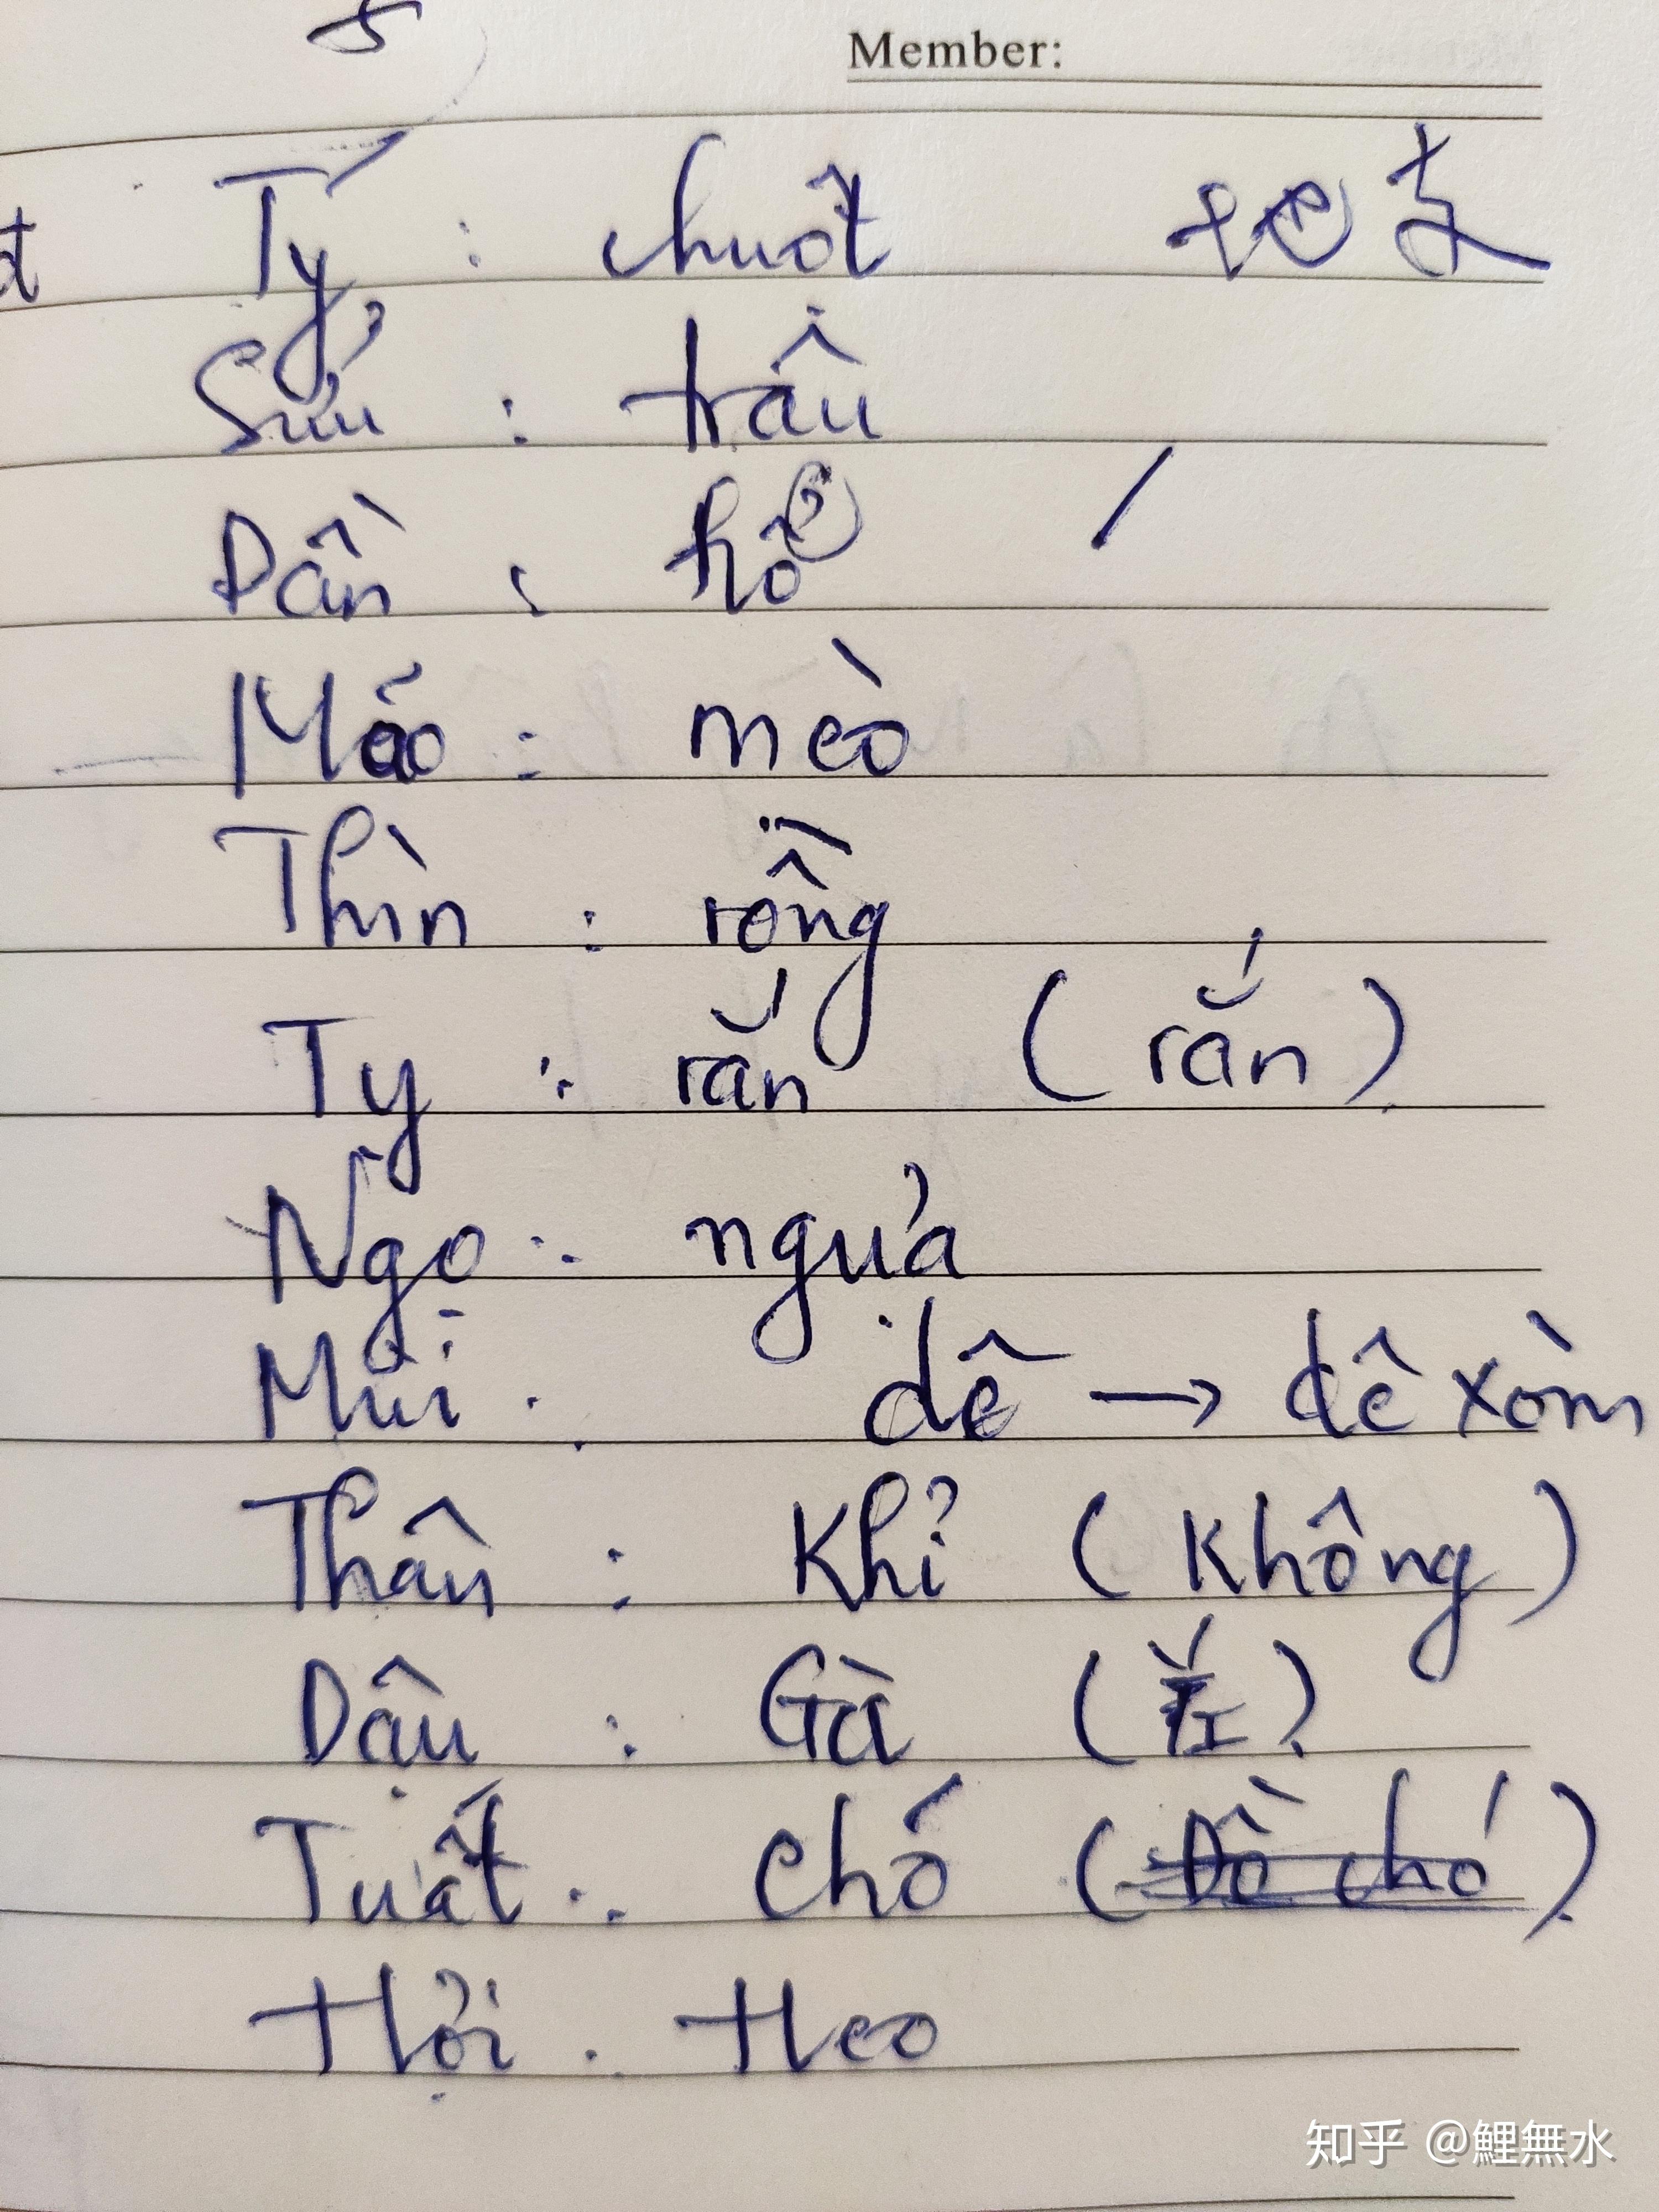 Member:
Tý : chuột 地支
Sửu : trâu
Dần : hổ
Máo : mèo
Thìn : rồng
Ty : rắn (rắn)
Ngọ : ngưả
Mùi : dê → dê xòm
Thân : Khỉ (Không)
Dậu : Gà (差)
Tuất : chó (Đồ chó)
Hợi : Heo
知乎 @鯉無水